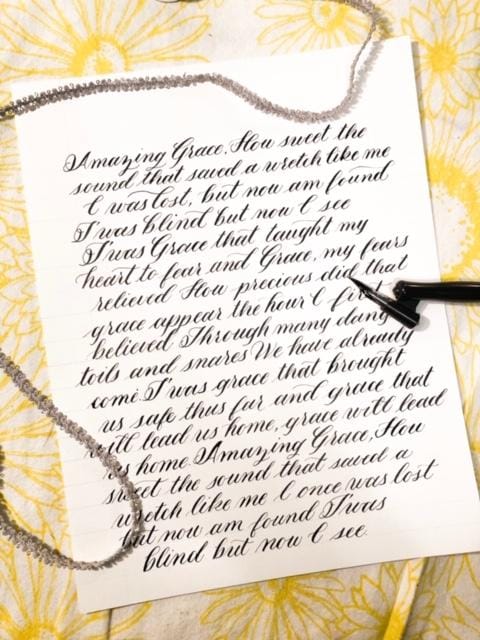 Amazing Grace, How sweet the
sound that saved a wretch like me
I was lost, but now am found
T'was blind but now I see
T'was Grace that taught my
heart to fear and Grace, my fears
relieved How precious did that
grace appear the hour I
believed Through many
toils and snares We have already
come T'was grace that brought
us safe thus far and grace that
will lead us home, grace will lead
us home. Amazing Grace, How
sweet the sound that saved a
wretch like me I once was lost
but now am found T'was
blind but now I see.